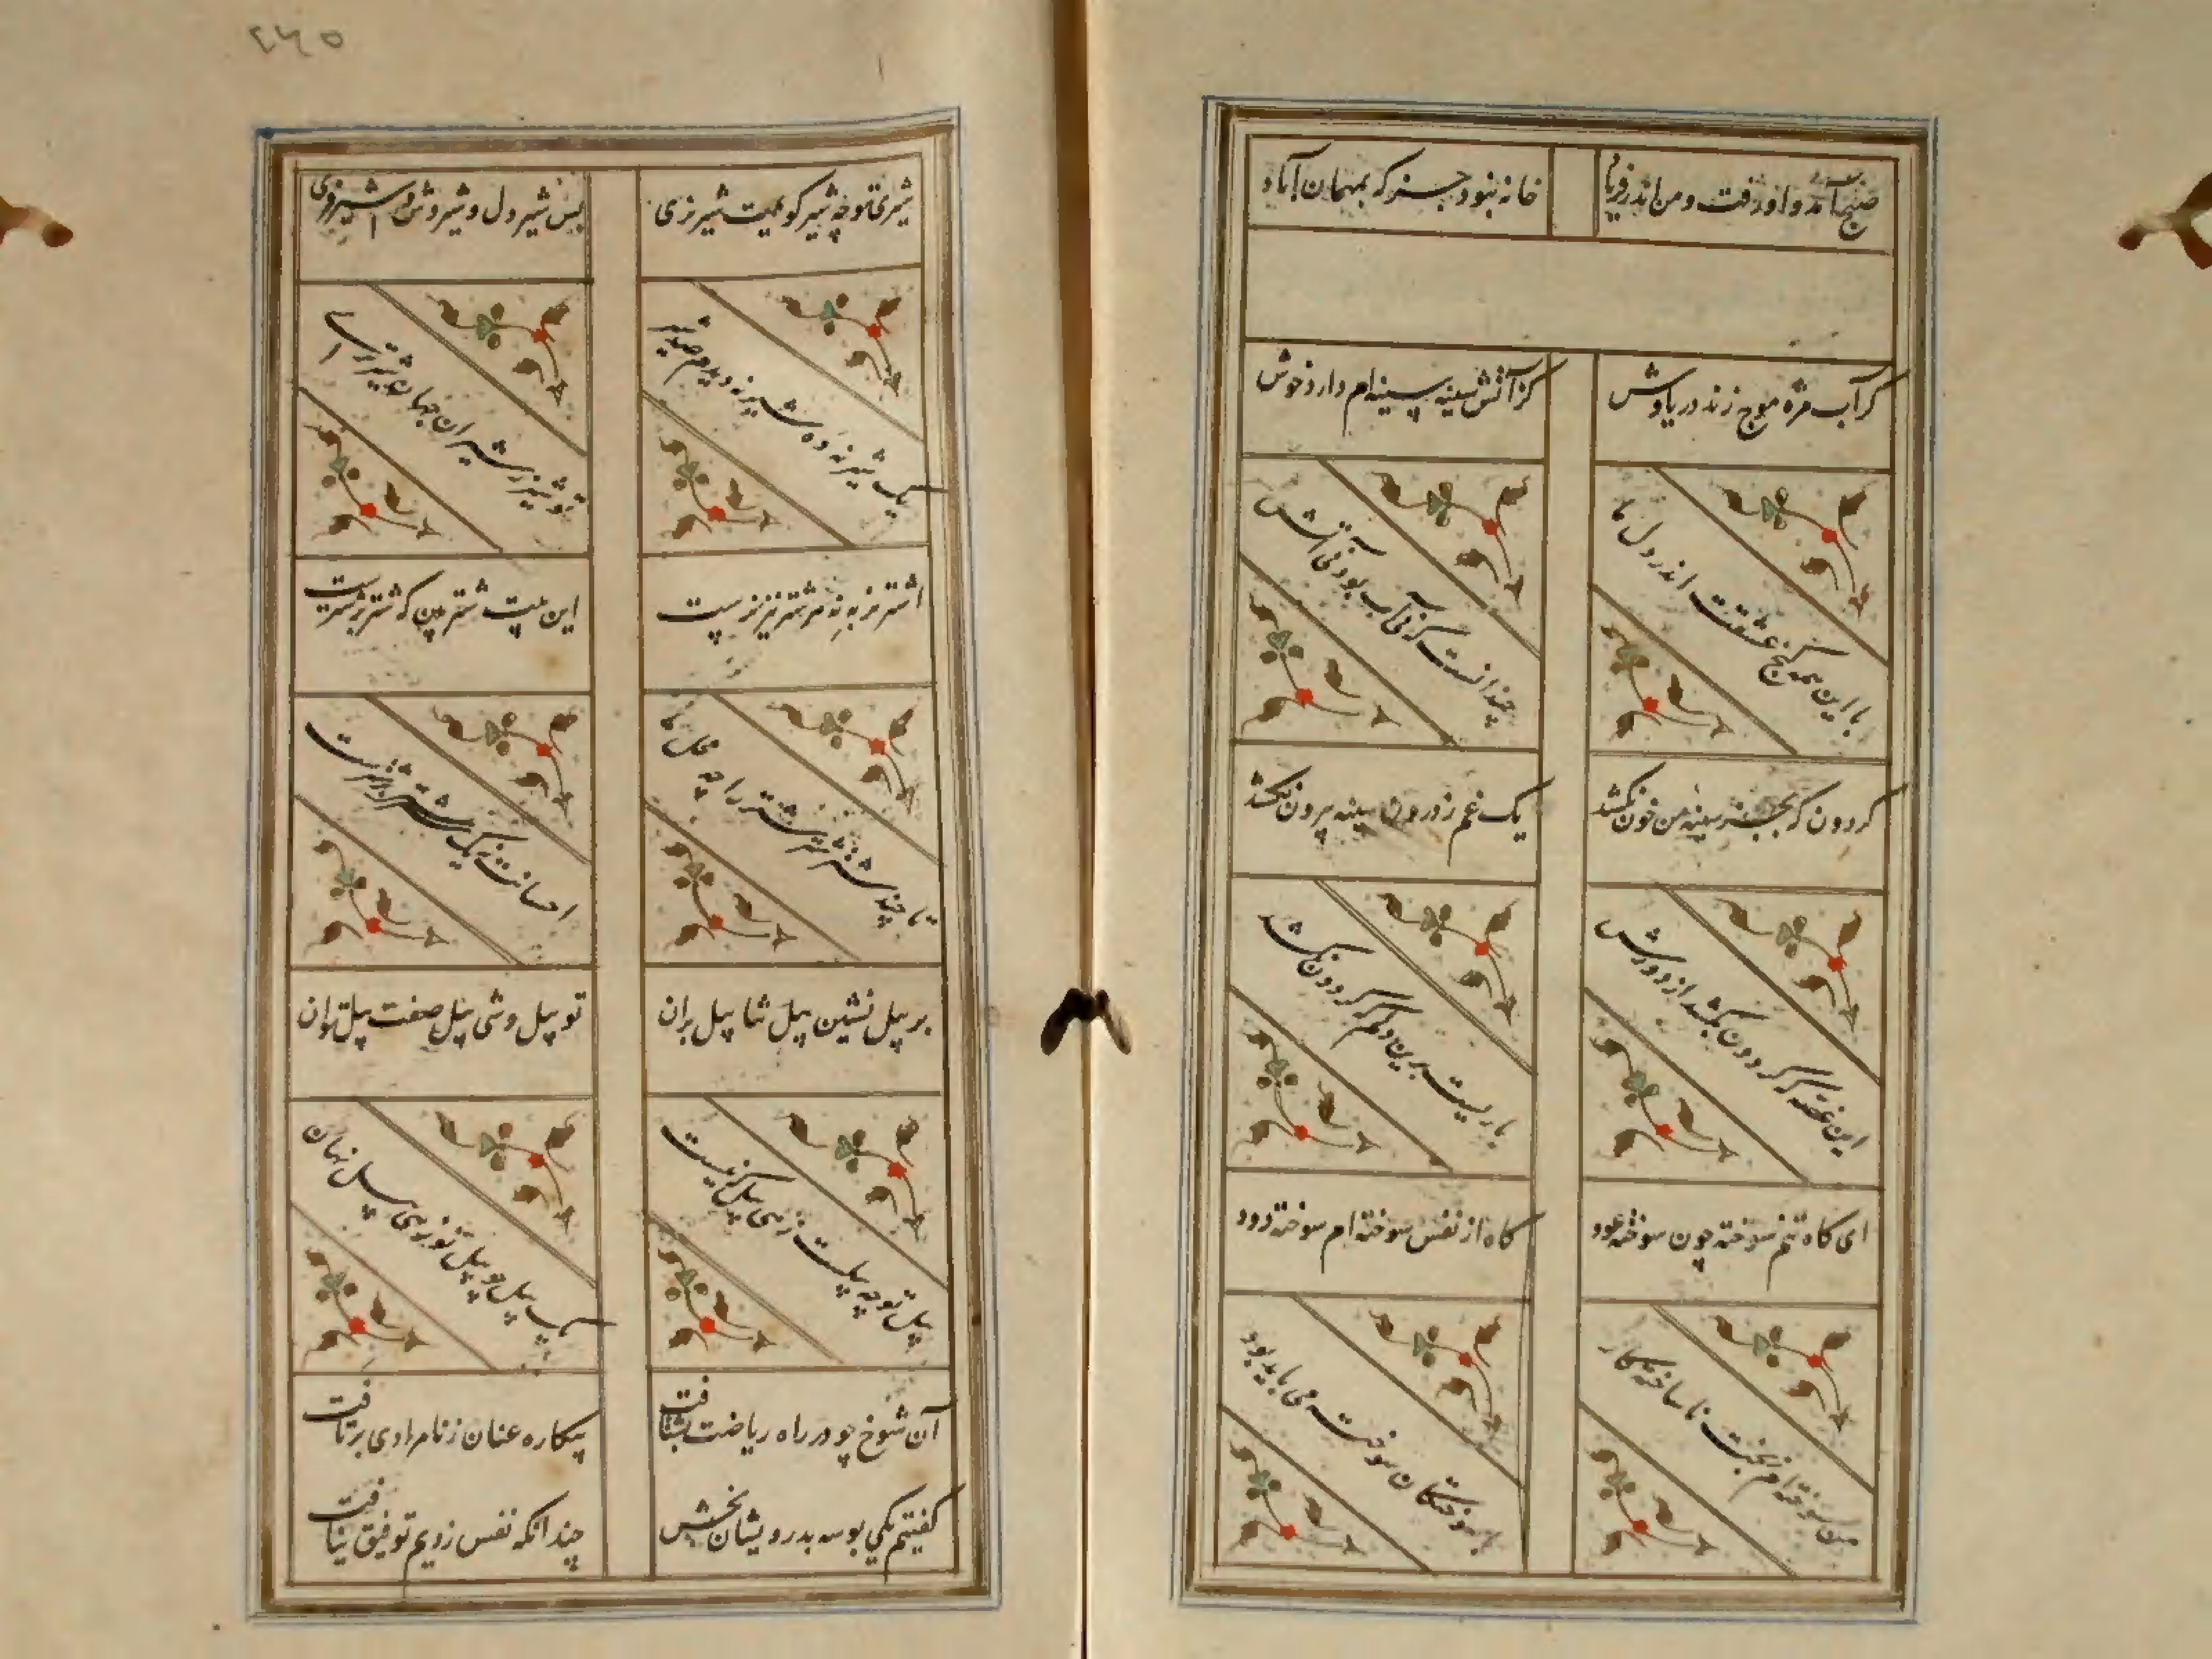 صبح آمد و او رفت و من اندر فریاد
خانه نبود جز که بمهمان آباد
کز آب مژه موج زند دریاوش
کز آتش سینه سینه‌ام دارد خوش
با این همه گنج عشقت اندر دل ما
چندانست کزین آب بود نی آتش
گردون که بجز سینه من خون نکشد
یک غم ز درون سینه بیرون نکشد
این غصه که گردون نکشد از دورش
باریست برین دلم که گردون نکشد
ای گاه تنم سوخته چون سوخته عود
گاه از نفس سوخته‌ام سوخته دود
من سوخته‌ام ز بخت ناساخته کار
سوختگان سوخت می باید بود
٤٦٥
شیری تو چه شیر کو همیت شیر نری
بس شیر دل و شیروش و شیر وری
یک شیر نه ده شیر نه دیدم صد شیر
تو شیر ز شیران جهان شیرتری
این بیت شتر بین که شتر
تا چند شتر شتر شتر را چه محل
احسانت ز یک شتر
بر پیل نشین پیل نما پیل بران
تو پیل وشی پیل صفت پیل توان
پیل تو چه پیلست ز می پیل
پیل چو پیل تو زهی پیل نهان
آن شوخ چو در راه ریاضت بشتافت
یکباره عنان ز نامرادی برتافت
گفتیم یکی بوسه بدرویشان بخش
چندانکه نفس زدیم توفیق نیافت